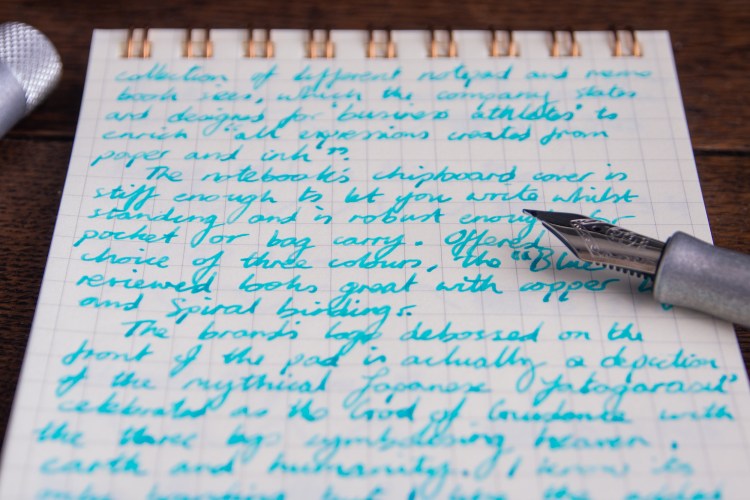 collection of different notepad and memo
book sizes, which the company states
and designed for 'business athletes' to
enrich "all expressions created from
paper and ink".
The notebook's chipboard cover is
stiff enough to let you write whilst
standing and is robust enough for
pocket or bag carry. Offered
choice of three colours, the "Blue
reviewed looks great with copper
and spiral bindings.
The brand's logo debossed on the
front of the pad is actually a depiction
of the mythical Japanese 'Yatagarasu'
celebrated as the God of Guidance with
the three legs symbolising heaven,
earth and humanity. I know its